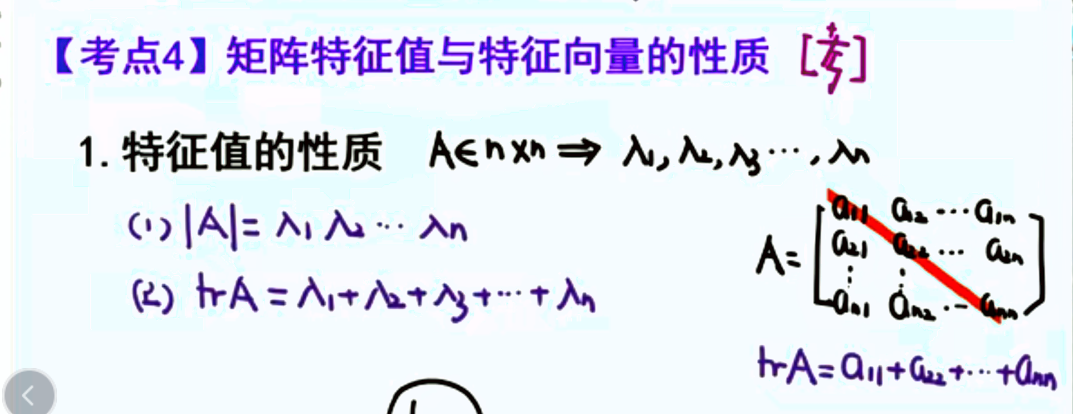 【考点4】矩阵特征值与特征向量的性质 [考]
1. 特征值的性质 A∈n×n ⇒ λ₁, λ₂, λ₃ ⋯, λn
(1) |A| = λ₁ λ₂ ⋯ λn
(2) trA = λ₁+λ₂+λ₃+⋯+λn
A = [a₁₁ a₁₂ ⋯ a₁n
a₂₁ a₂₂ ⋯ a₂n
⋮ ⋮
an₁ an₂ ⋯ ann]
trA = a₁₁+a₂₂+⋯+ann